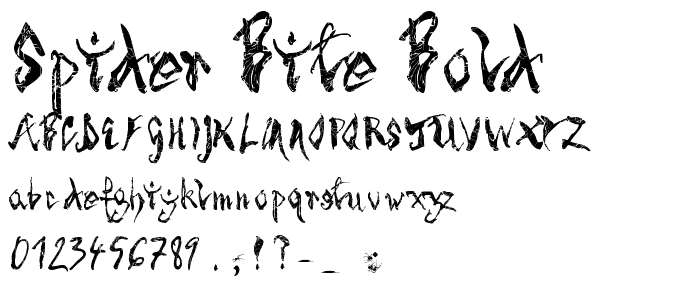 Spider Bite Bold
ABCDEFGHIJKLMNOPQRSTUVWXYZ
abcdefghijklmnopqrstuvwxyz
0123456789 . , ; ! ? - _ :